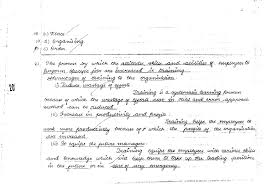 d) Organising
c) Order
The process by which the aptitudes, skills and abilities of employees to
perform specific jobs are increased is training.
Advantages of training to the organisation:
i) Reduce wastage of efforts
Training is a systematic learning process
because of which the wastage of efforts used in trial and error approach
ii) Increase in productivity and profits
Training helps the employees to
work more productively because of which the profits of the organisation
are increased.
iii) To equip the future managers
Training equips the employees with various skills
and knowledge which will help them to take up the leading position
in the future or in case of any emergency.
20